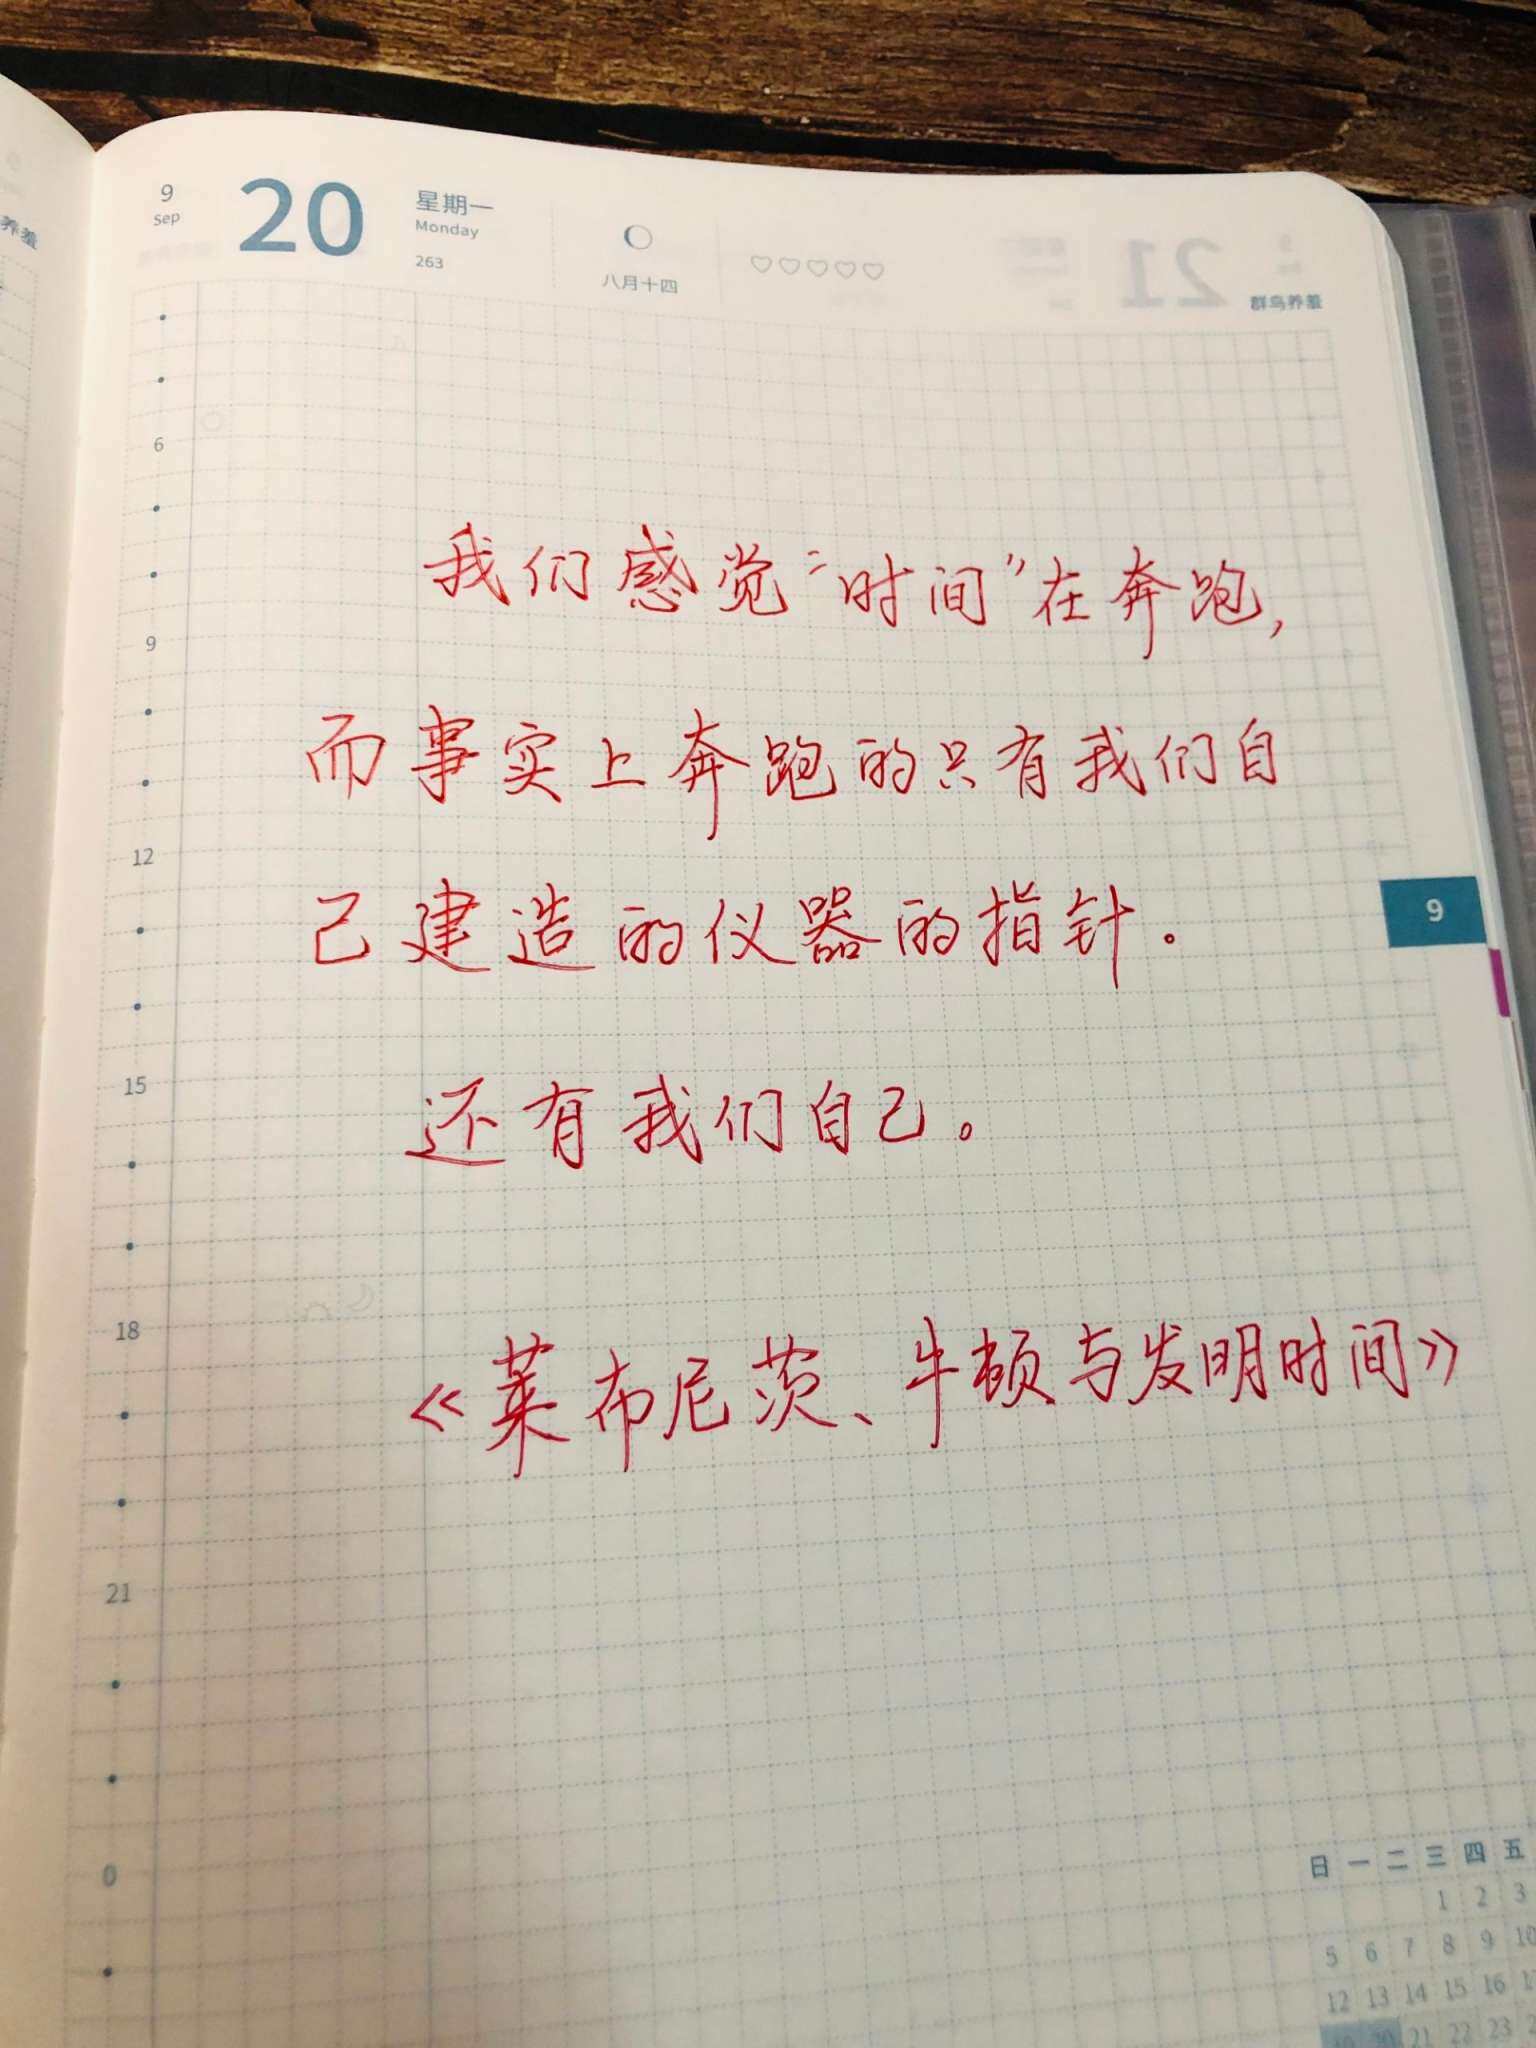 养羞
9
Sep
20
星期一
Monday
263
八月十四
群鸟养羞
6
我们感觉“时间”在奔跑,
9
而事实上奔跑的只有我们自
12
己建造的仪器的指针。
9
15
还有我们自己。
18
《莱布尼茨、牛顿与发明时间》
21
0
日 一 二 三 四 五
1 2 3
5 6 7 8 9 10
12 13 14 15 16
19 20 21 22 23